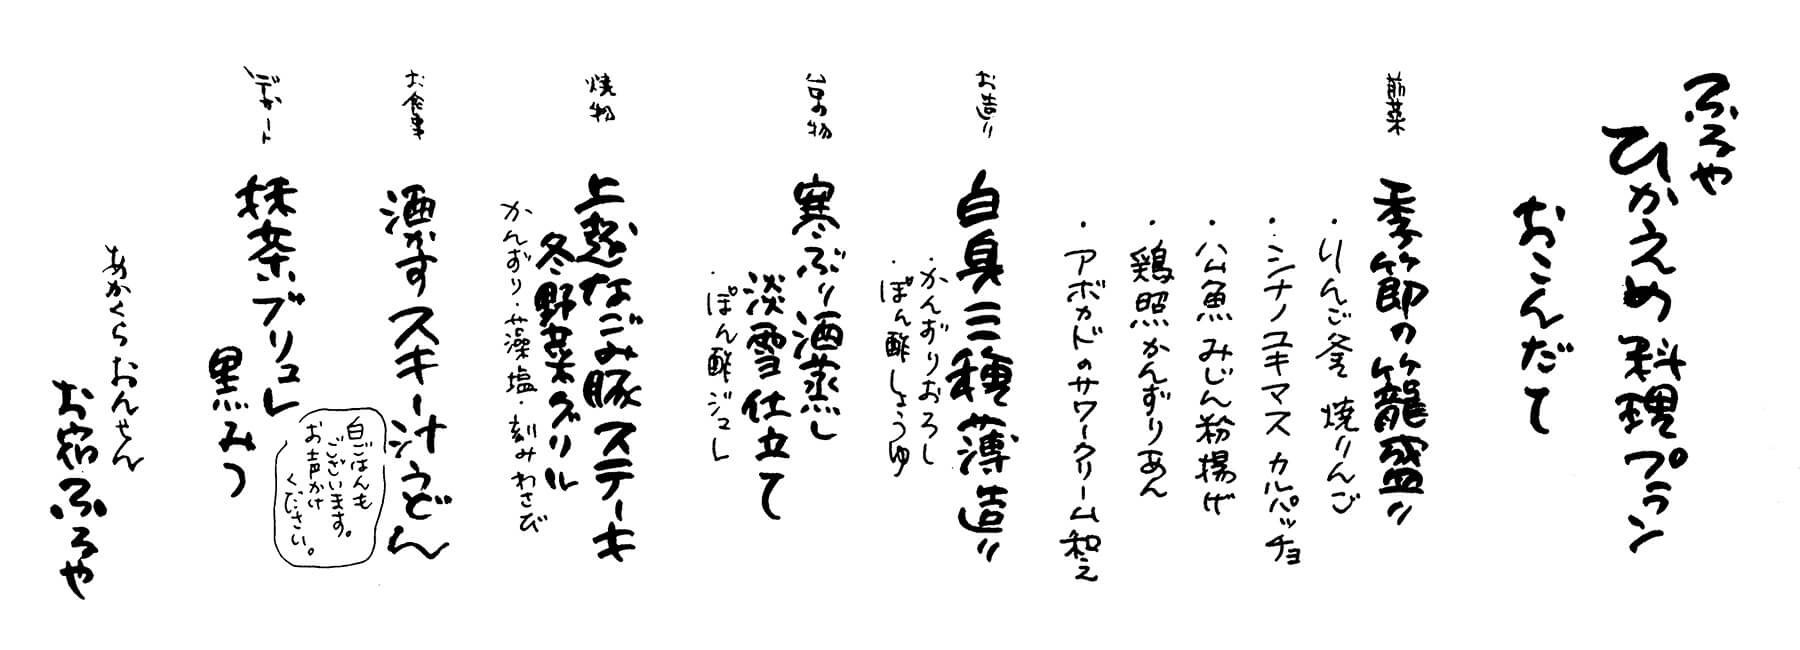 ふるや
ひかえめ料理プラン
おこんだて
前菜
季節の籠盛り
・りんご釜 焼りんご
・シナノユキマス カルパッチョ
・公魚 みじん粉揚げ
・鶏照 かんずりあん
・アボカドのサワークリーム和え
お造り
白身三種薄造り
・かんずりおろし
・ぽん酢しょうゆ
台の物
寒ぶり酒蒸し
淡雪仕立て
・ぽん酢ジュレ
焼物
上越なごみ豚ステーキ
冬野菜グリル
かんずり・藻塩・刻みわさび
お食事
酒かすスキー汁うどん
白ごはんも
ございます。
お声かけ
ください。
デザート
抹茶ブリュレ
黒みつ
あかくらおんせん
お宿ふるや